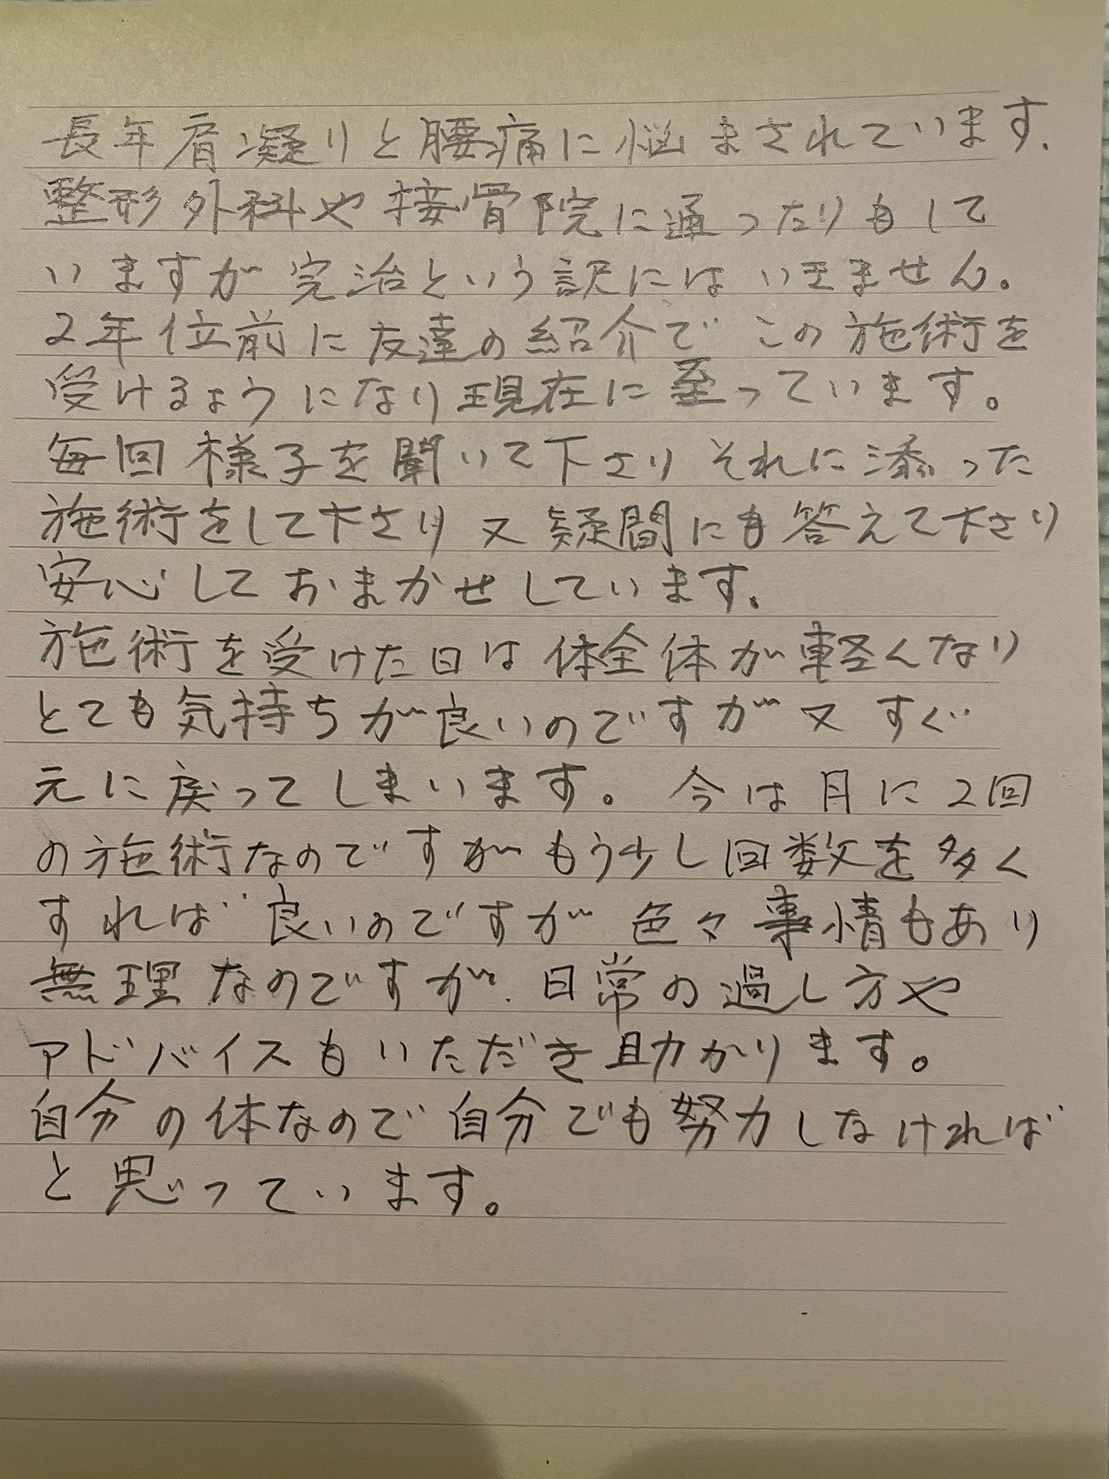 長年肩凝りと腰痛に悩まされています.
整形外科や接骨院に通ったりもして
いますが完治という訳にはいきません。
2年位前に友達の紹介で この施術を
受けるようになり現在に至っています。
毎回様子を聞いて下さり それに添った
施術をして下さり 又 疑問にも答えて下さり
安心しておまかせしています.
施術を受けた日は体全体が軽くなり
とても気持ちが良いのですが又 すぐ
元に戻ってしまいます。今は月に2回
の施術なのですがもう少し回数を多く
すれば良いのですが 色々事情もあり
無理なのですが、日常の過し方や
アドバイスもいただき助かります。
自分の体なので自分でも努力しなければ
と思っています。